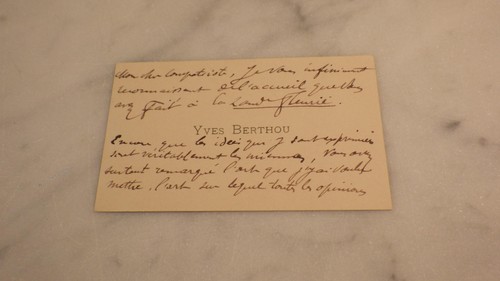 Mon cher compatriote, Je vous infiniment
reconnaissant de l'accueil que vous
avez fait à la Lande fleurie.
YVES BERTHOU
Encore que les idées que j'y sont exprimées
sont véritablement les miennes, vous avez
surtout remarqué l'art que j'y ai voulu
mettre. l'art sur lequel toutes les opinions